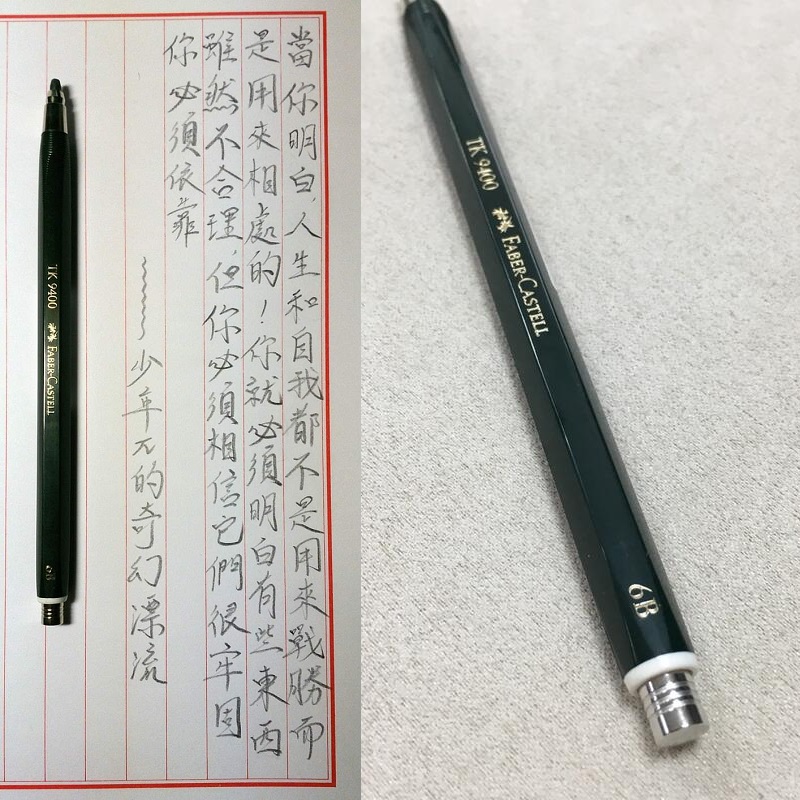 當你明白,人生和自我都不是用來戰勝而
是用來相處的!你就必須明白有些東西
雖然不合理,但你必須相信它們很牢固
你必須依靠
~~~~~少年π的奇幻漂流
TK 9400 FABER-CASTELL 6B
TK 9400 FABER-CASTELL
6B